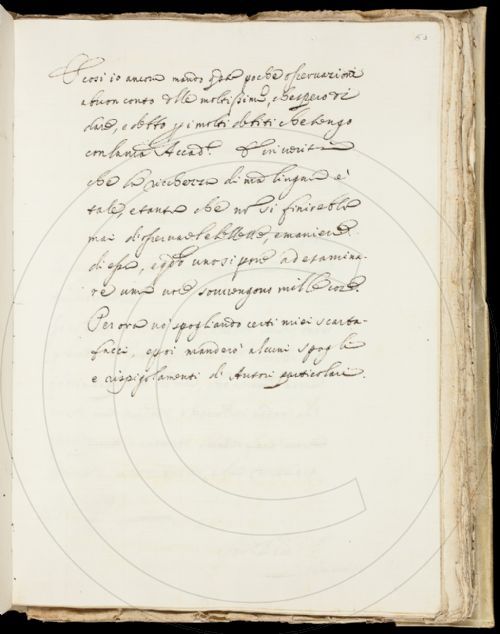 E così io ancora mando q.te poche osservazioni
a buon conto delle moltissime, che spero di
dare, e detto p i molti debiti che tengo
con la mia Accad.a E in verità
che la ricchezza di n.ra lingua è
tale, e tanta che non si finirebbe
mai d'osservare le bellezze, e maniere
di essa, e q.do uno si pone ad esamina-
re una voce sovvengono mille cose.
Per ora vo spogliando certi miei scarta-
facci, e poi manderò alcuni spogli
e rispigolamenti di Autori particolari.